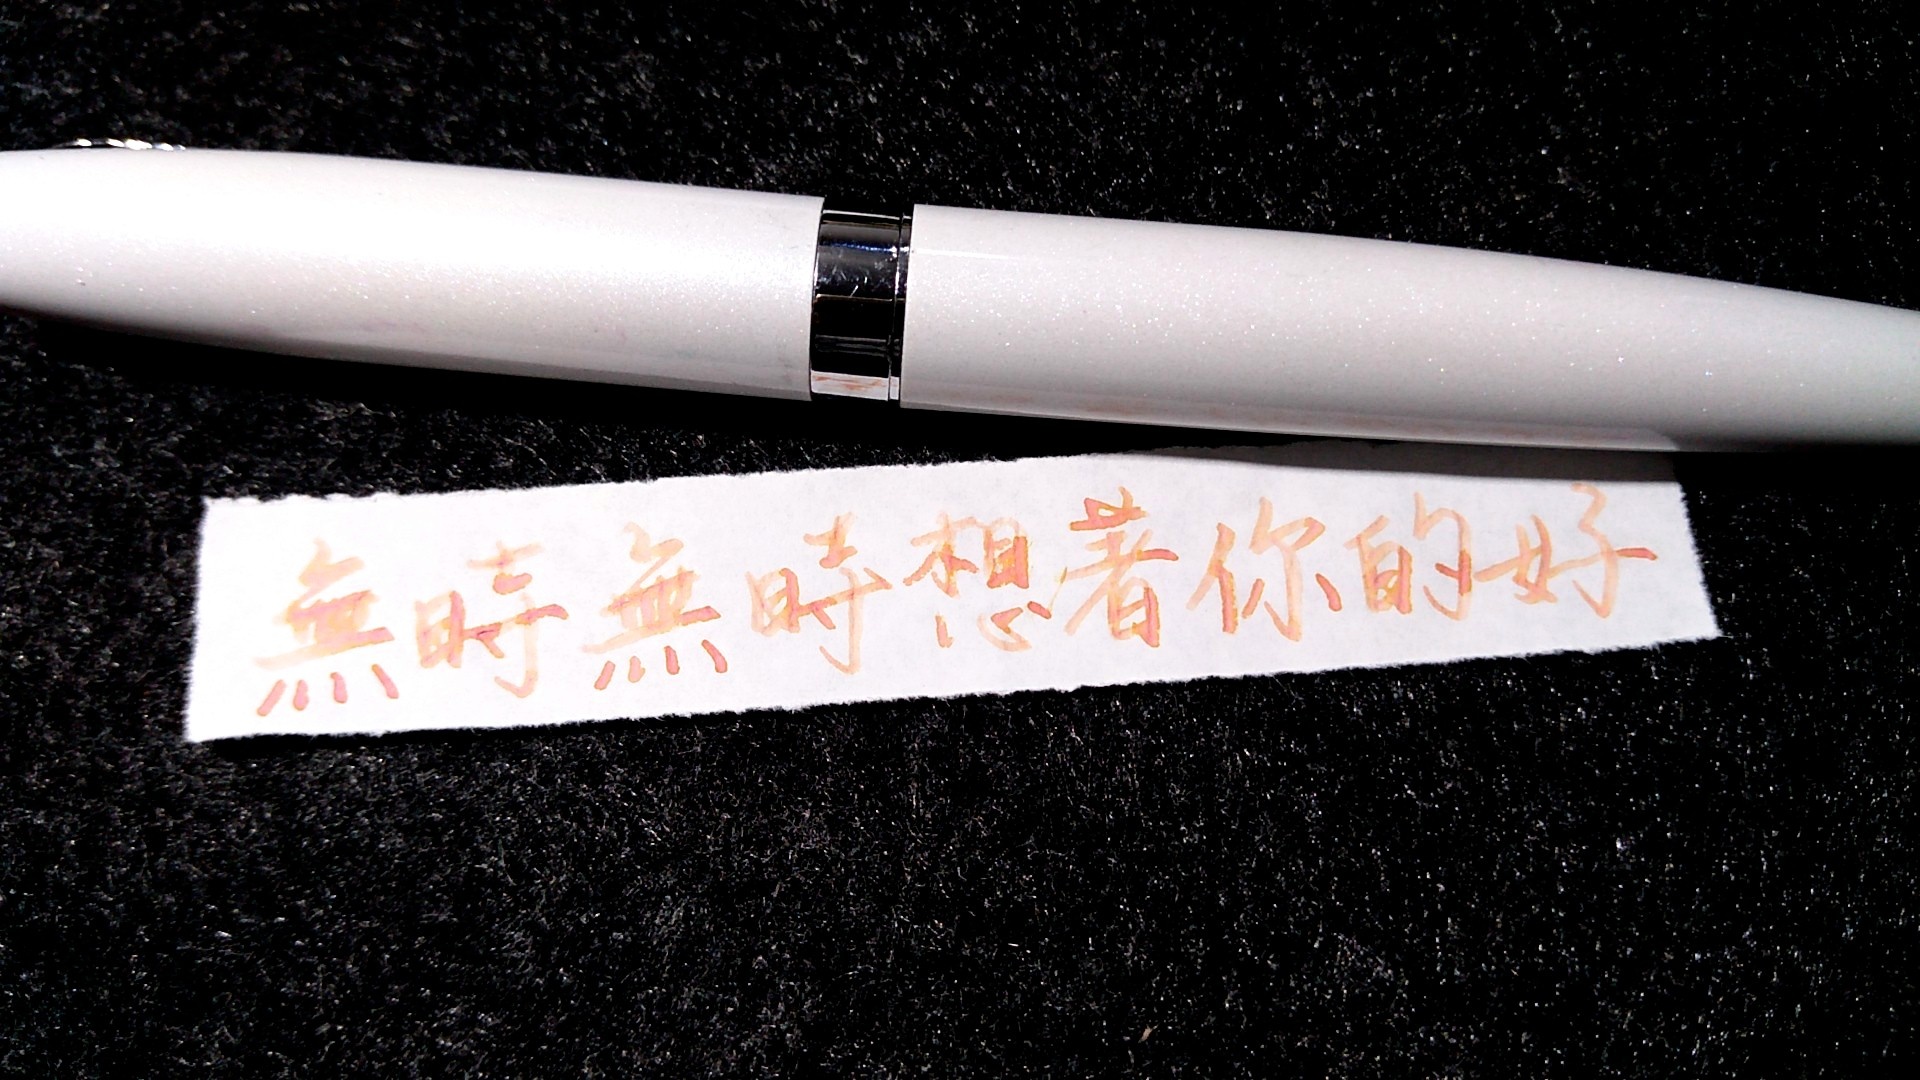 無時無時想著你的好